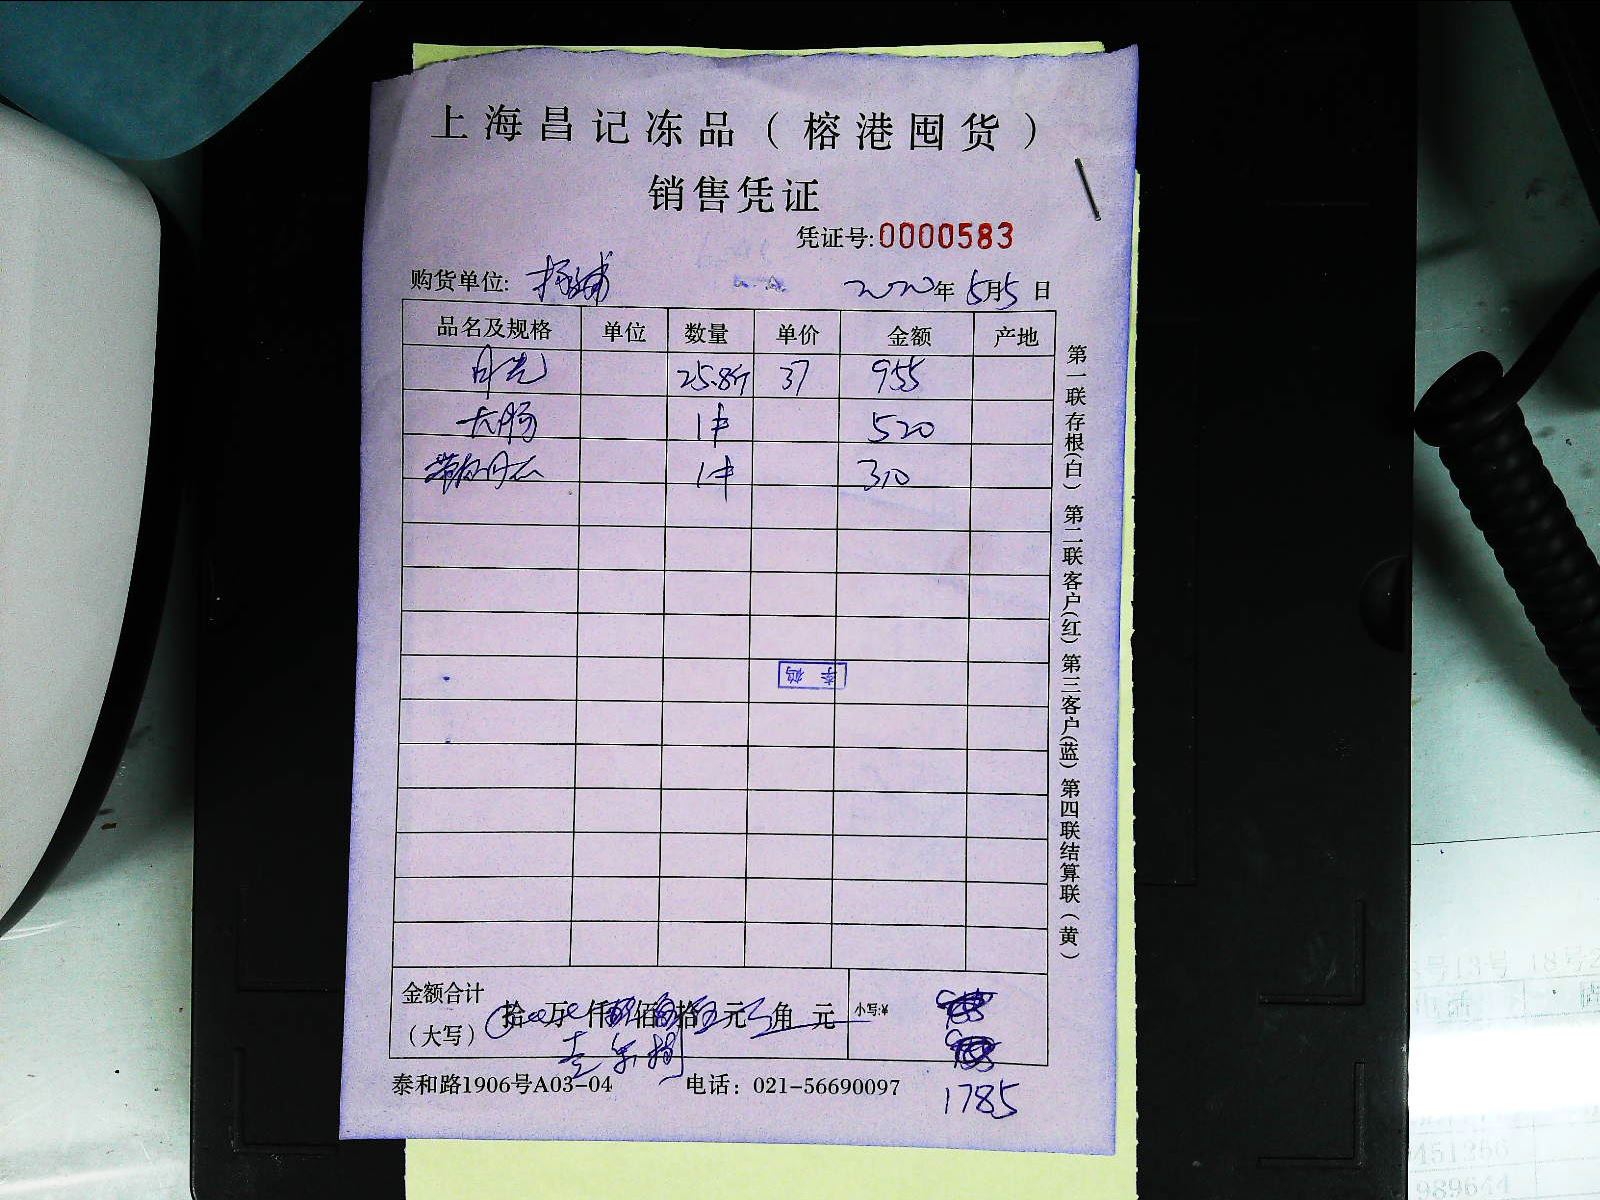 上海昌记冻品（榕港囤货）
销售凭证
凭证号:0000583
购货单位: 杨浦 2020年5月5日
品名及规格 单位 数量 单价 金额 产地
25.8斤 37 955
大肠 1件 520
1件 310
第一联存根(白) 第二联客户(红) 第三客户(蓝) 第四联结算联(黄)
李鹤
金额合计
（大写）
拾 万 仟 佰 拾 元 角 元
小写:¥
泰和路1906号A03-04 电话：021-56690097
1785